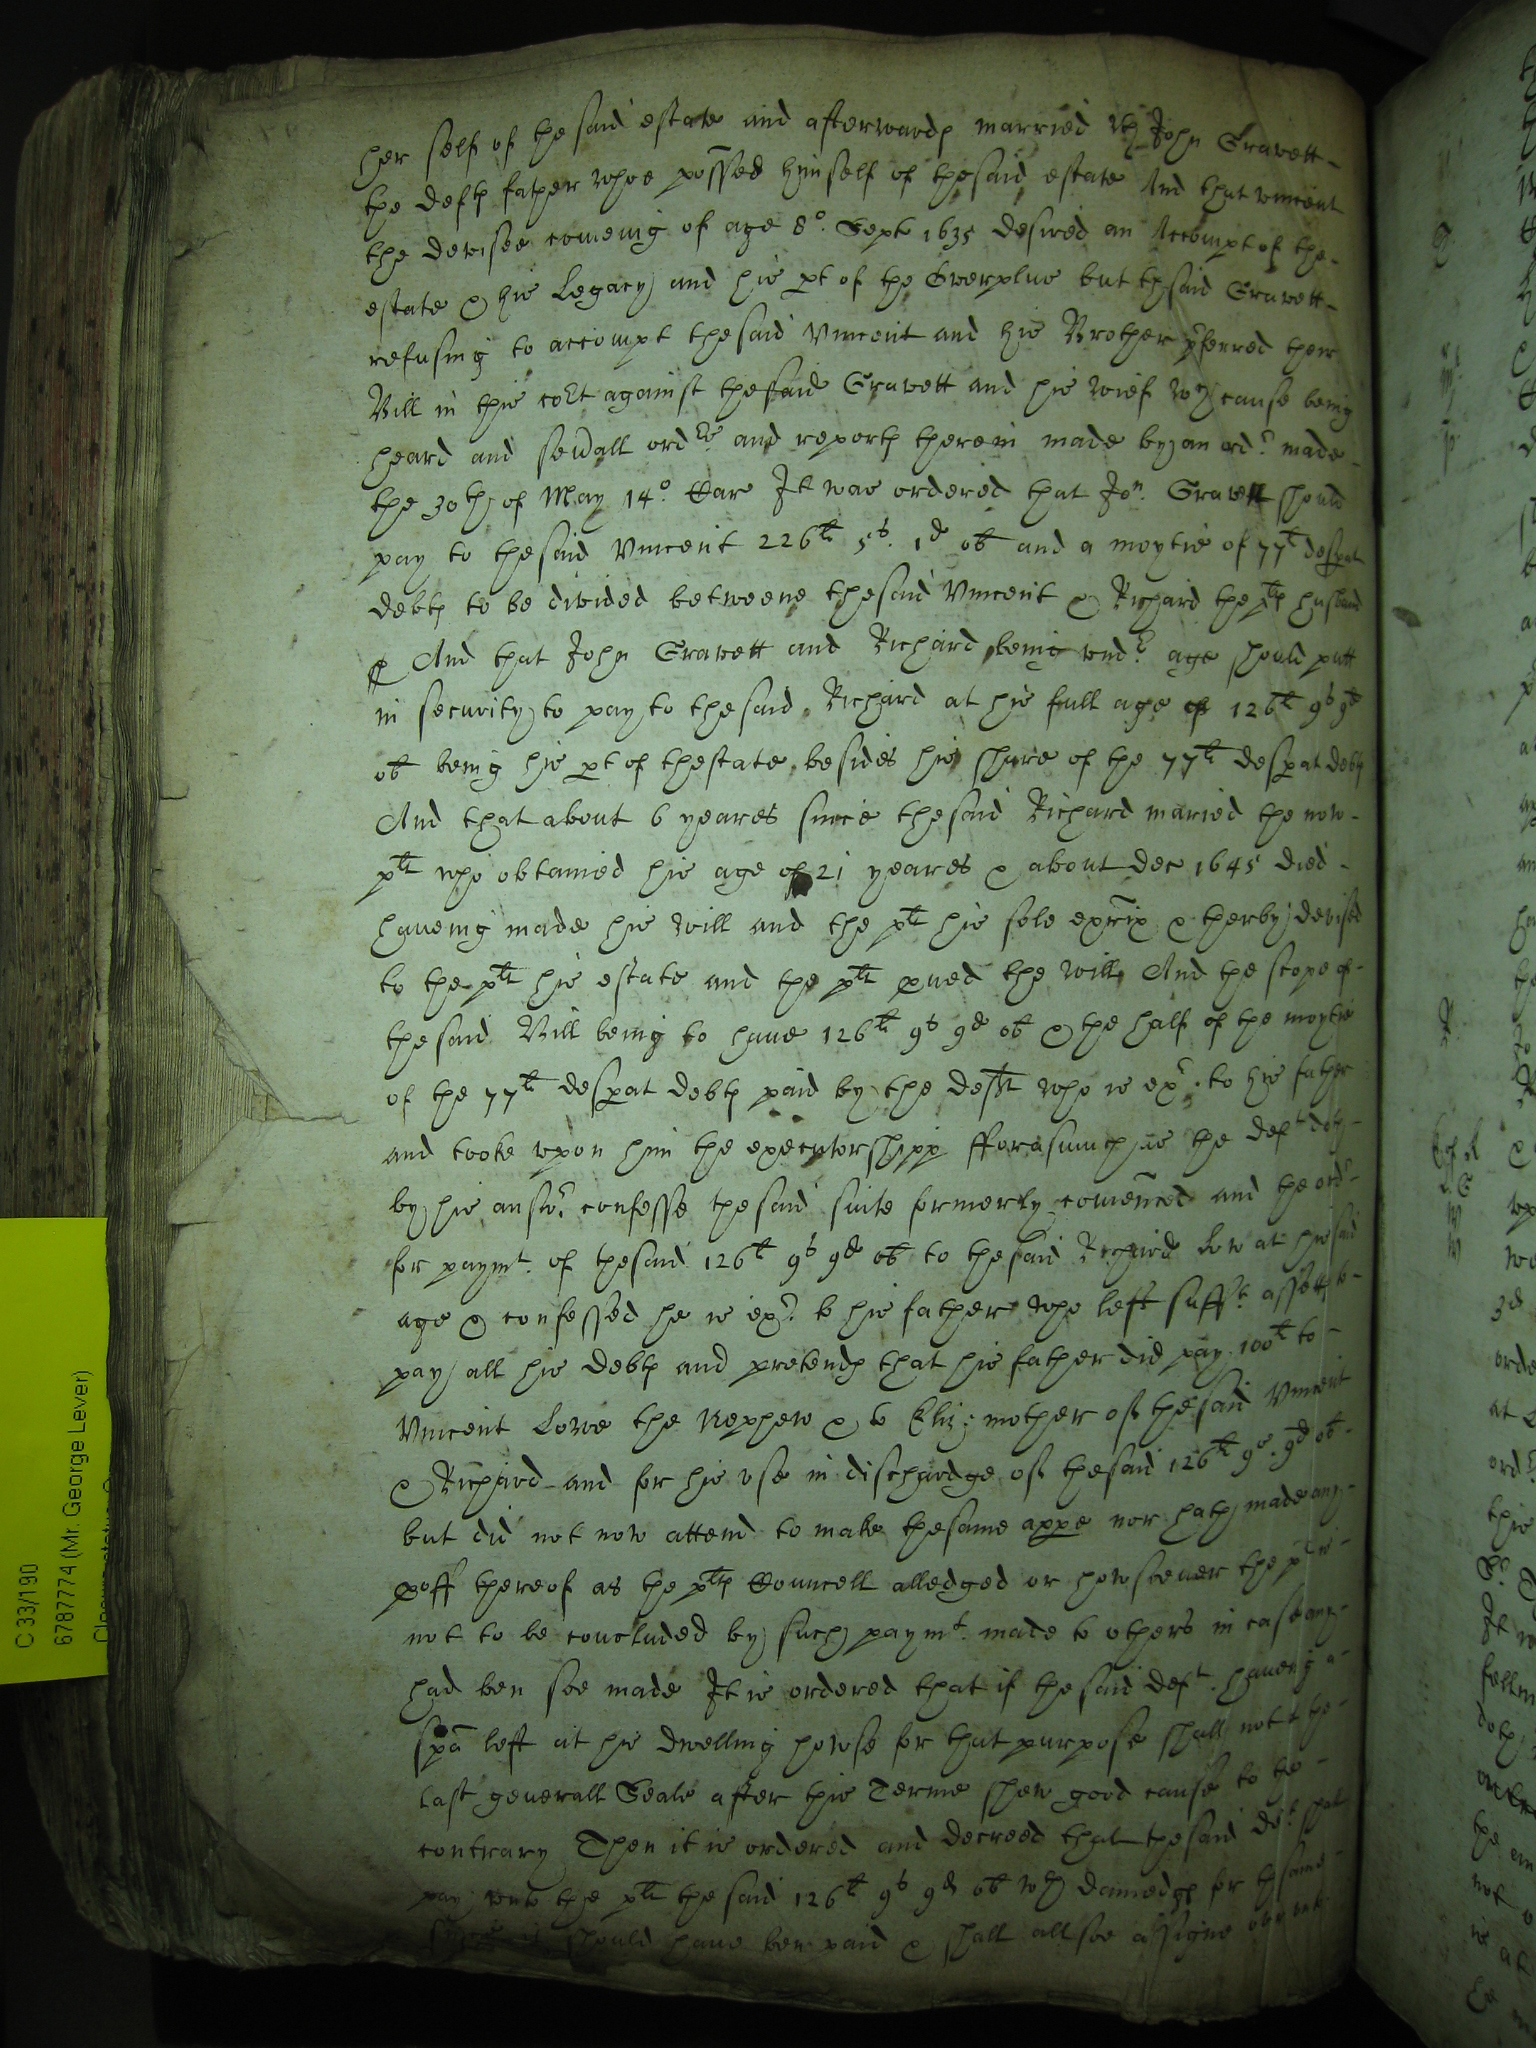 her self of the said estate and afterwards married wth John Gravett
the defts father whoe possed himself of the said estate And that vincent
the devisee comeing of age 8o. Sept 1635 desired an Accompt of the
estate & his Legacy and his pt of the Overplus but th said Gravett
refusing to accompt the said Vincent and his Brother pferred their
Bill in this cort against the said Gravett and his wief wch cause being
heard and sevall ordrs and reports therein made by an ordr made
the 30th of May 14o. Car It was ordered that Jon. Gravett should
pay to the said Vincent 226li 5s. 1d ob and a moytie of 77li despat
debts to be divided betweene the said Vincent & Richard the plts husband
And that John Gravett and Richard being undr age should putt
in security to pay to the said Richard at his full age of 126li 9s 9d
ob being his pt of thestate besides his share of the 77li despat debts
And that about 6 yeares since the said Richard maried the now
plt who obtained his age of 21 yeares & about Dec 1645 died
haveing made his will and the plt his sole exrix & therby devised
to the plt his estate and the plt pved the will And the scope of
the said Bill being to have 126li 9s 9d ob & the half of the moytie
of the 77li despat debts paid by the deft who is exr. to his father
and tooke upon him the executorshipp fforasmuch as the deft doth
by his answr. confesse the said suite formerly comenced and the ordr
for paymt. of the said 126li 9s 9d ob to the said Richard Low at his said
age & confessed he is exr. to his father who left sufft. assetts to
pay all his debts and pretends that his father did pay 100li to
Vincent Lowe the Nephew & to Eliz: mother of the said Vincent
& Richard and for his use in dischardge of the said 126li 9s. 9d ob
but did not now attend to make the same appe nor hath made any
poff thereof as the plts Councell alledged or howsoever the plt is
not to be concluded by such paymt. made to others in case any
had ben soe made It is ordered that if the said deft. haveing a
spa left at his dwelling howse for that purpose shall not the
last generall Seale after this Terme shew good cause to the
contrary Then it is ordered and decreed that the said deft shall
pay unto the plt the said 126li 9s 9d ob wth damedges for th same
since it should have ben paid & shall allsoe assigne over
C 33/190
6787774 (Mr. George Lever)